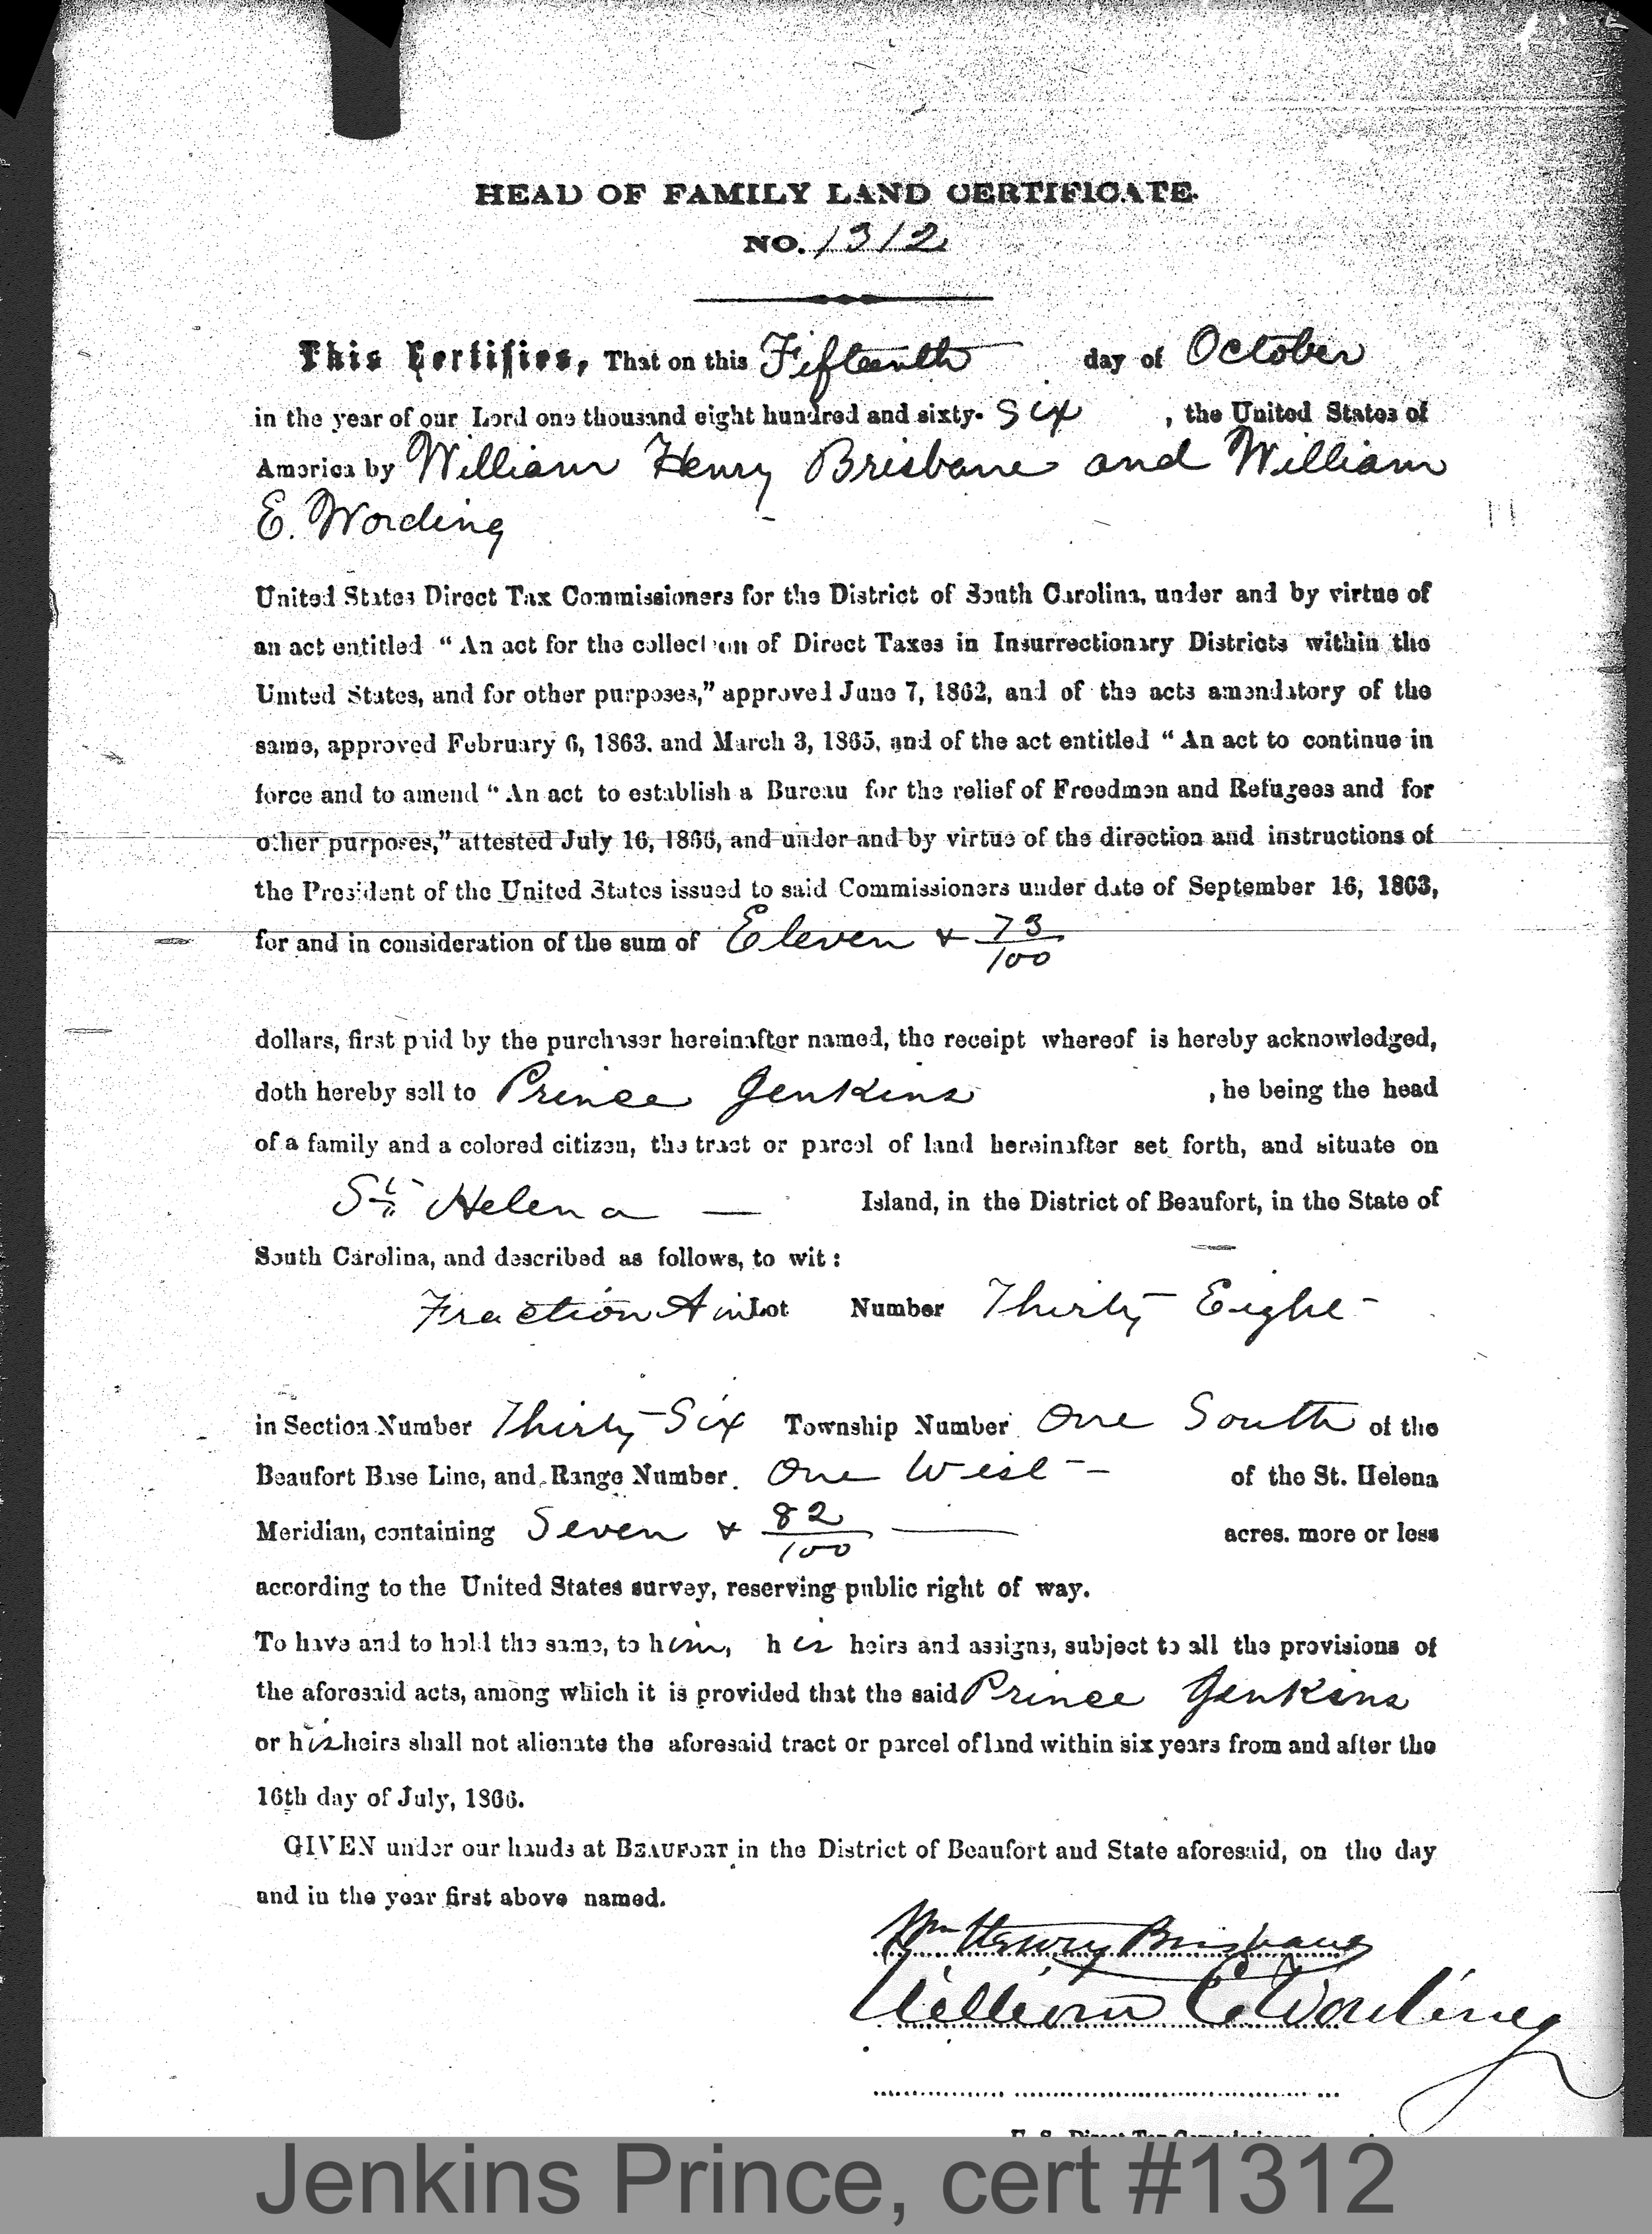 HEAD OF FAMILY LAND CERTIFICATE.
NO. 1312
This Certifies, That on this Fifteenth day of October
in the year of our Lord one thousand eight hundred and sixty- Six , the United States of
America by William Henry Brisbane and William
E. Wording
United States Direct Tax Commissioners for the District of South Carolina, under and by virtue of
an act entitled “ An act for the collection of Direct Taxes in Insurrectionary Districts within the
United States, and for other purposes,” approved June 7, 1862, and of the acts amendatory of the
same, approved February 6, 1863. and March 3, 1865, and of the act entitled “ An act to continue in
force and to amend “ An act to establish a Bureau for the relief of Freedmen and Refugees and for
other purposes,” attested July 16, 1866, and under and by virtue of the direction and instructions of
the President of the United States issued to said Commissioners under date of September 16, 1863,
for and in consideration of the sum of Eleven & 73/100
dollars, first paid by the purchaser hereinafter named, the receipt whereof is hereby acknowledged,
doth hereby sell to Prince Jenkins , he being the head
of a family and a colored citizen, the tract or parcel of land hereinafter set forth, and situate on
St. Helena — Island, in the District of Beaufort, in the State of
South Carolina, and described as follows, to wit :
Fraction A in Lot Number Thirty Eight -
in Section Number Thirty-Six Township Number One South of the
Beaufort Base Line, and Range Number One West -- of the St. Helena
Meridian, containing Seven & 82/100 — acres. more or less
according to the United States survey, reserving public right of way.
To have and to hold the same, to him, his heirs and assigns, subject to all the provisions of
the aforesaid acts, among which it is provided that the said Prince Jenkins
or his heirs shall not alienate the aforesaid tract or parcel of land within six years from and after the
16th day of July, 1866.
GIVEN under our hands at BEAUFORT in the District of Beaufort and State aforesaid, on the day
and in the year first above named.
Wm Henry Brisbane
William E. Wording
U. S. Direct Tax Commissioners
Jenkins Prince, cert #1312